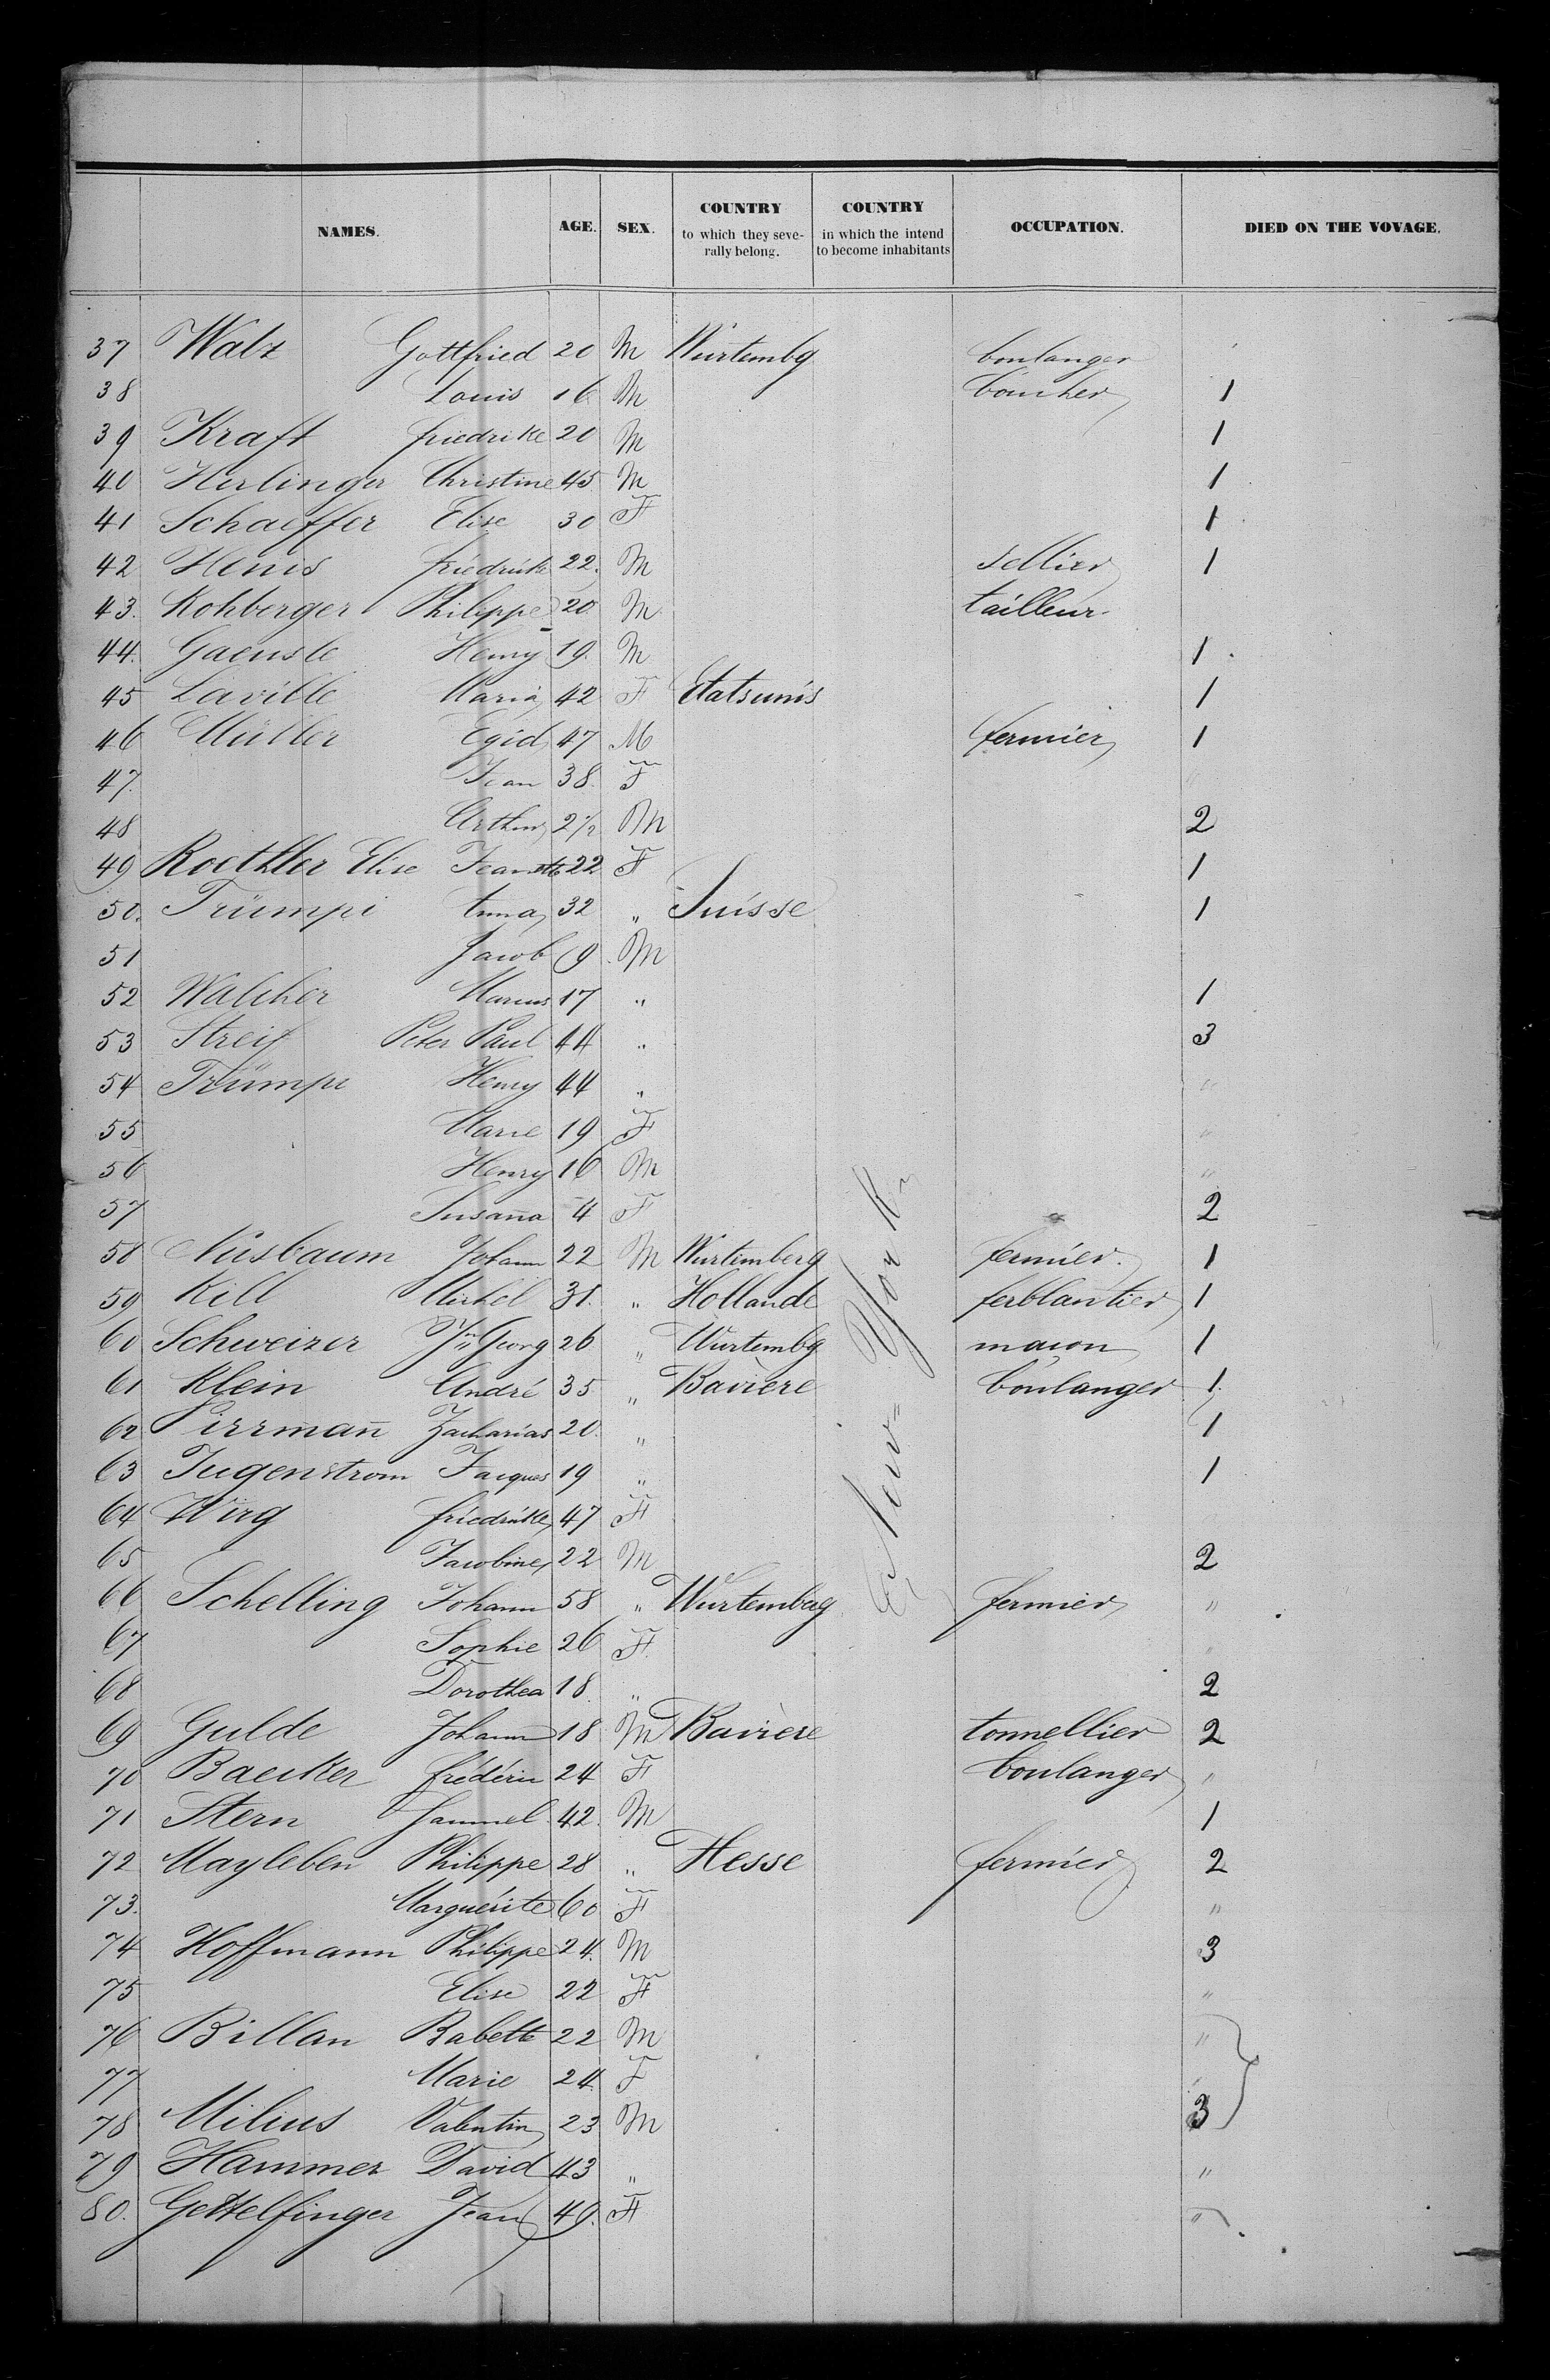 NAMES. AGE. SEX. COUNTRY to which they seve- rally belong. COUNTRY in which the intend to become inhabitants OCCUPATION. DIED ON THE VOVAGE.
37 Walz Gottfried 20 M Würtembg boulanger
38 Louis 16 M boucher 1
39 Kraft friedrike 20 M 1
40 Herlinger Christine 45 M 1
41 Schaeffer Elise 30 F 1
42 Henis friedrick 22. M sellier 1
43. Kohberger Philippe 20 M tailleur
44. Gaensle Henry 19. M 1
45 Laville Maria 42 F Etatsunis 1
46 Müller Egid 47 M fermier 1
47. Jean 38. F
48 Arthur 2 1/2 M 2
49 Roethler Elise Jeanette 22 F 1
50. Trümpi Anna 32 " Suisse 1
51 Jacob 9 M
52 Walcher Marcus 17 " 1
53 Streif Peter Paul 44 " 3
54 Trümpi Henry 44 " "
55 Marie 19 F "
56 Henry 16 M "
57 Susaña 4 F 2
58 Nusbaum Johann 22 M Wurtemberg fermier. 1
59 Kill Michel 31. " Hollande ferblantier 1
60 Schweizer Jn Georg 26 " Würtembg macon 1
61 Klein André 35 " Bavière boulanger 1
62 Pirrmañ Zacharias 20. " 1
63 Jugenstrom Jacques 19 " 1
64 Wirg friedrikke 47 F
65 Jacobine 22 M 2
66 Schelling Johann 58 " Wurtemberg fermier "
67 Sophie 26 F "
68 Dorothea 18. " 2
69 Gulde Johann 18 M Bavière tonnellier 2
70 Baecker frédéric 24 F boulanger "
71 Stern Samuel 42. M 1
72 Mayleben Philippe 28 " Hesse fermier 2
73. Marguérite 60 F "
74 Hoffmann Philippe 24. M 3
75 Elise 22 F "
76 Billan Babette 22 M "
77 Marie 24 F "
78 Milius Valentin 23 M 3
79 Hammer David 43 " "
80. Gettelfinger Jean 49. F "
New York